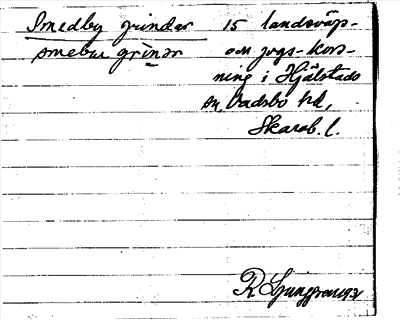 Smedby grindar
smebu grinar
15 landsväp-
om jvgs-kors-
ning i Hjälstads
sn, Vadsbo hd,
Skarab. l.
R Ljunggren 1931